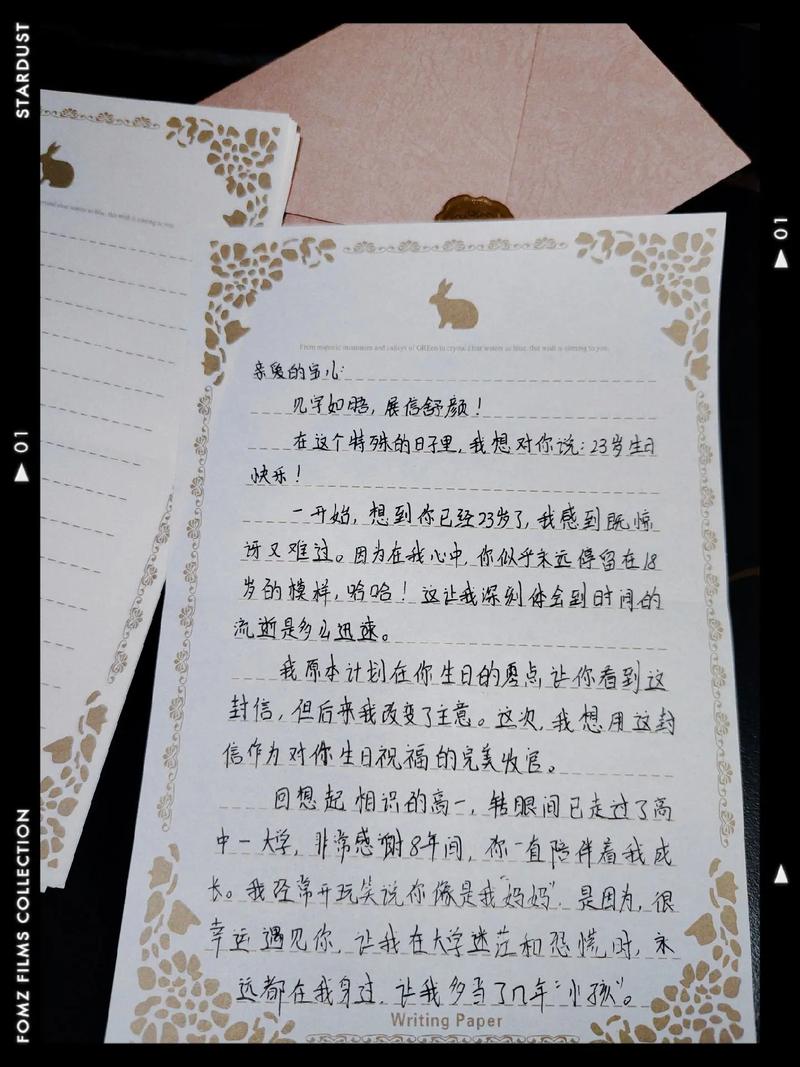 STARDUST
01
01
FOMZ FILMS COLLECTION
From majestic mountains and valleys of GREEn to crystal clear waters so blue, this wish is coming to you.
亲爱的宝儿:
见字如晤,展信舒颜!
在这个特殊的日子里,我想对你说:23岁生日
快乐!
一开始,想到你已经23岁了,我感到既惊
讶又难过。因为在我心中,你似乎永远停留在18
岁的模样,哈哈!这让我深刻体会到时间的
流逝是多么迅速。
我原本计划在你生日的零点让你看到这
封信,但后来我改变了主意。这次,我想用这封
信作为对你生日祝福的完美收官。
回想起相识的高一,转眼间已走过了高
中—大学,非常感谢8年间,你一直陪伴着我成
长。我经常开玩笑说你像是我“妈妈”,是因为,很
幸运遇见你,让我在大学迷茫和恐慌时,永
远都在我身边,让我多当了几年“小孩”。
Writing Paper